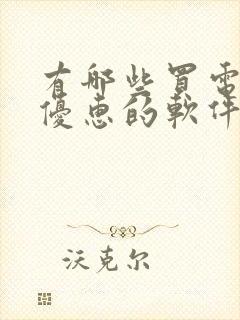 有哪些買電
優惠的軟件
沃克尔